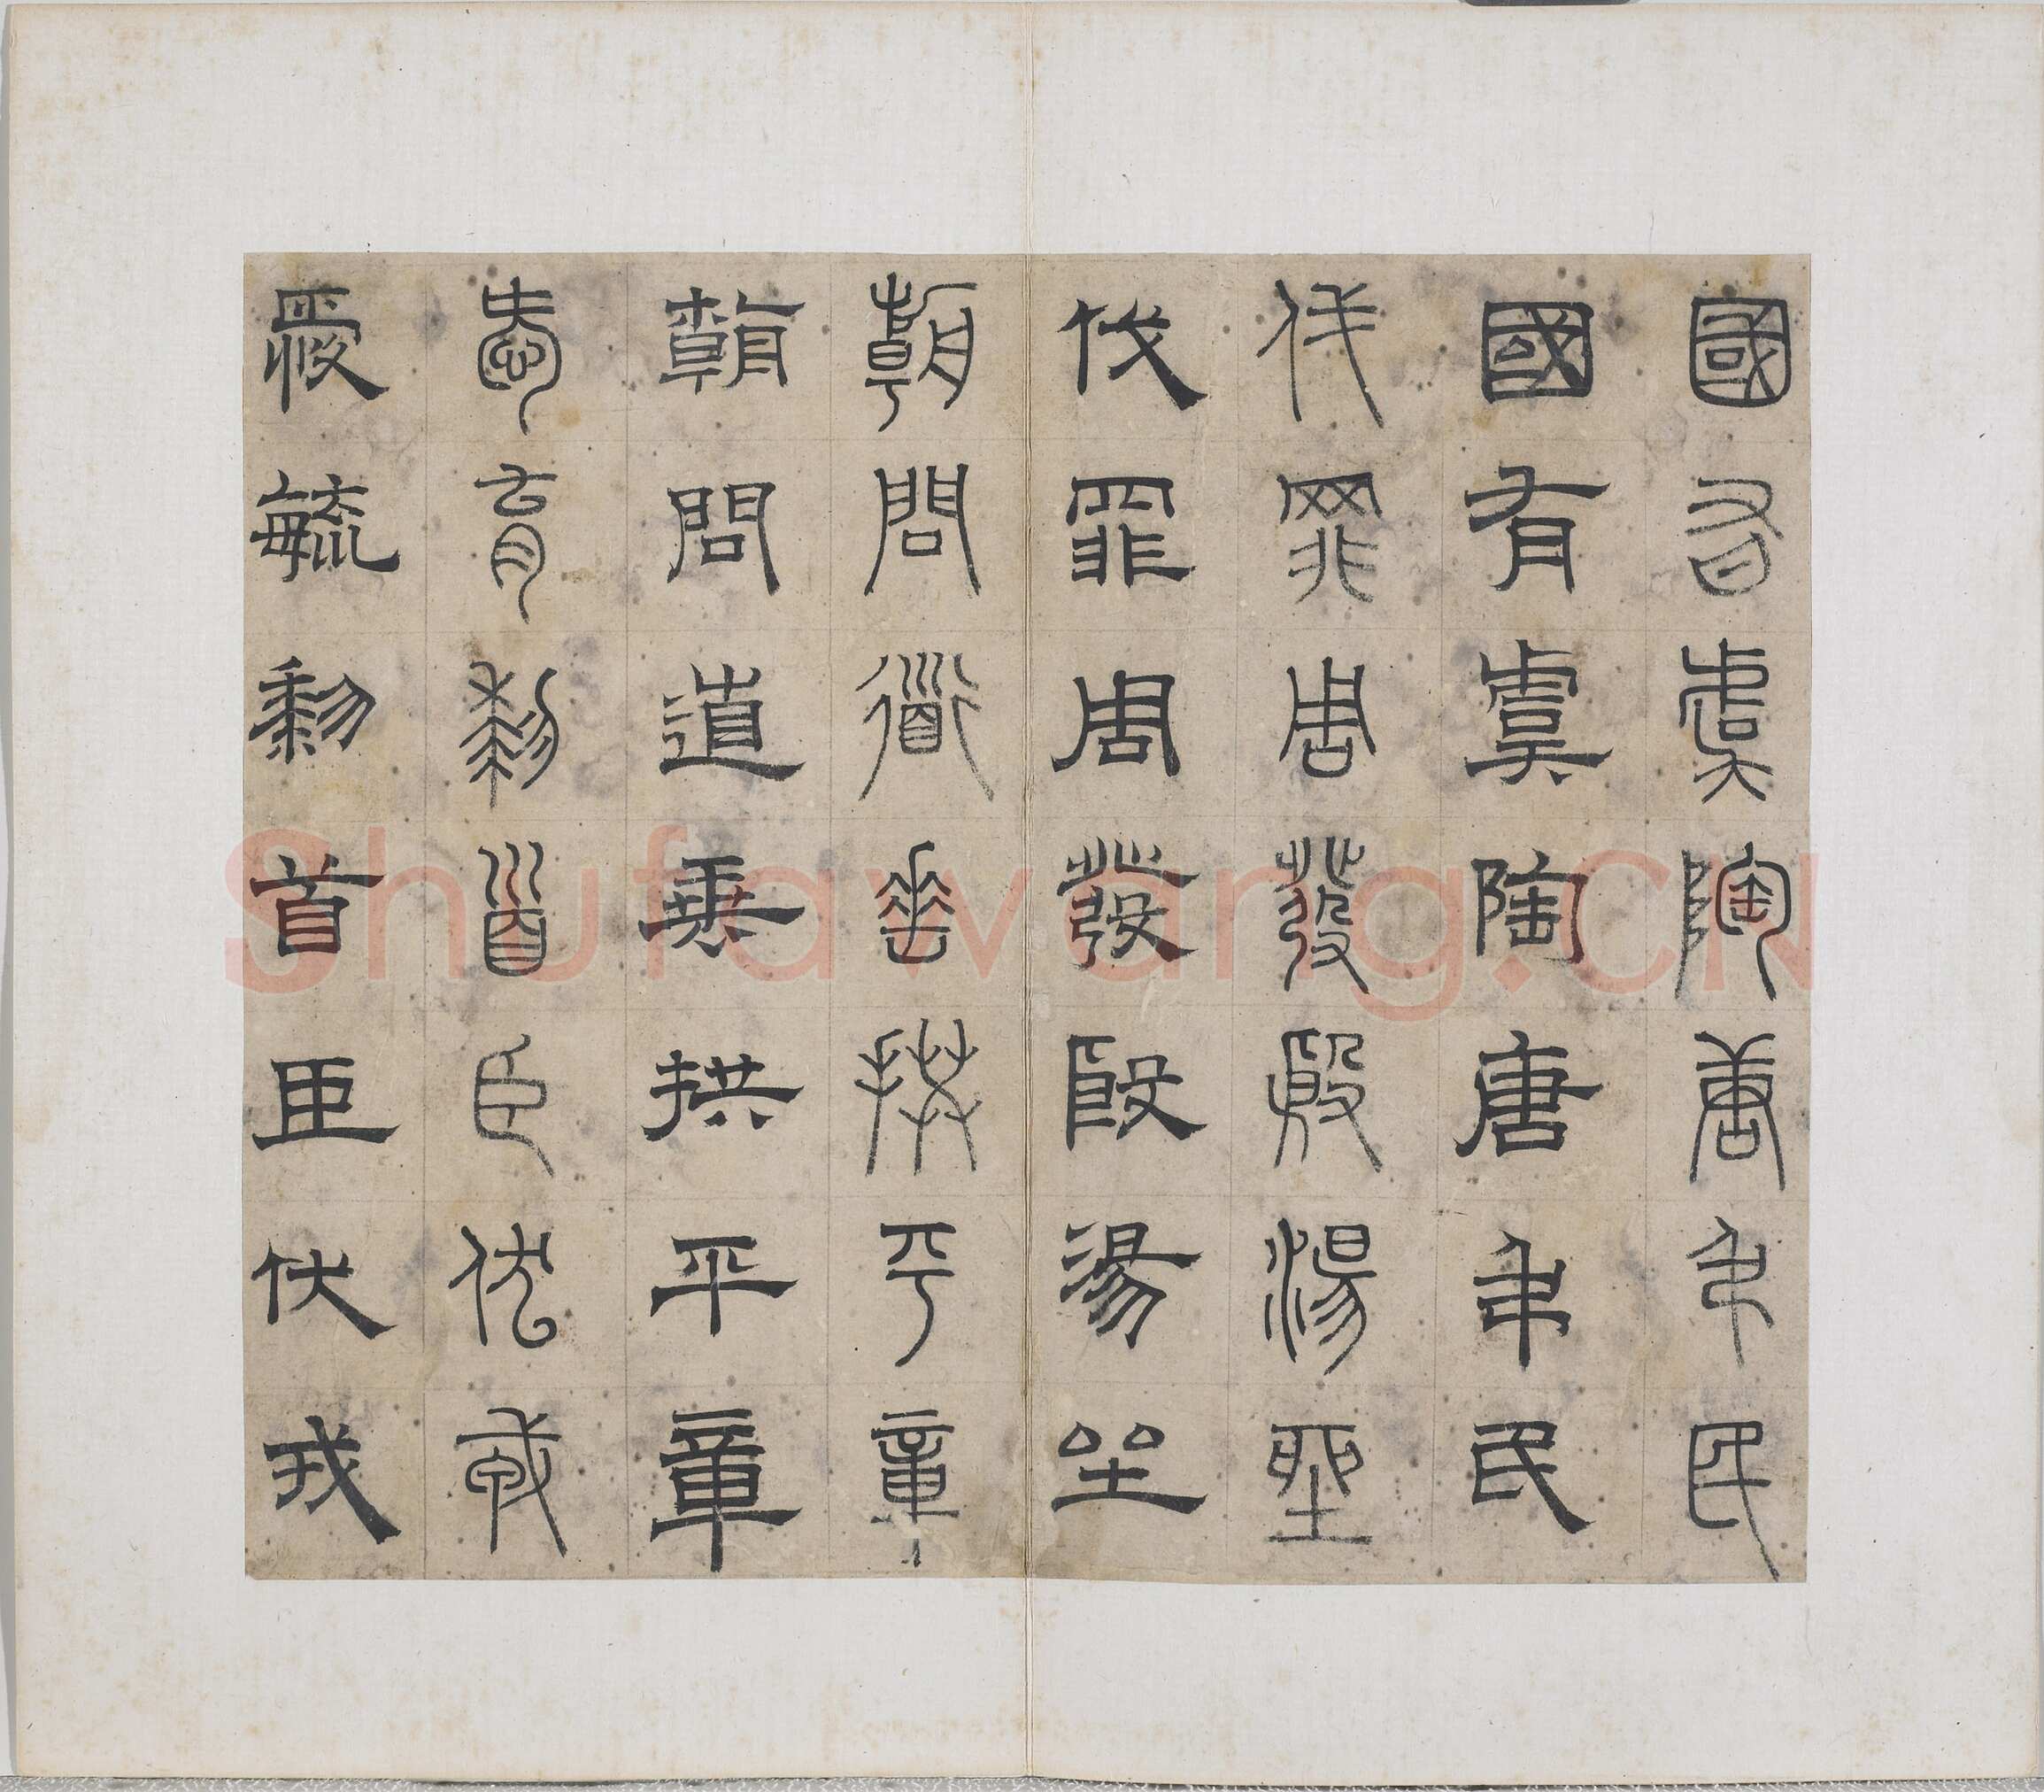 國有虞陶唐弔民
國有虞陶唐弔民
伐罪周發殷湯坐
伐罪周發殷湯坐
朝問道垂拱平章
朝問道垂拱平章
愛育黎首臣伏戎
愛育黎首臣伏戎
Shufawang.CN